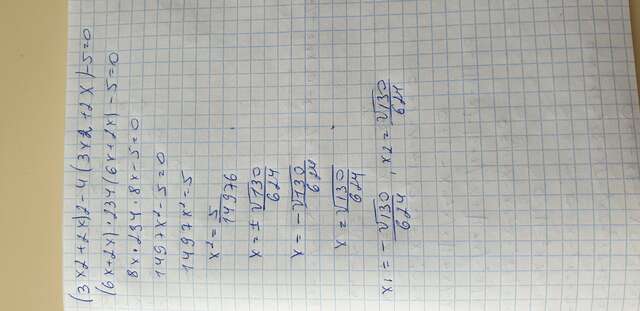 (3x2+2x)2-4(3x2+2x)-5=0
(6x+2x)·234(6x+2x)-5=0
8x·234·8x-5=0
1497x²-5=0
1497x²=5
x²=5/14976
x=±√130/624
x=-√130/624
x=√130/624
x₁=-√130/624, x2=√130/624